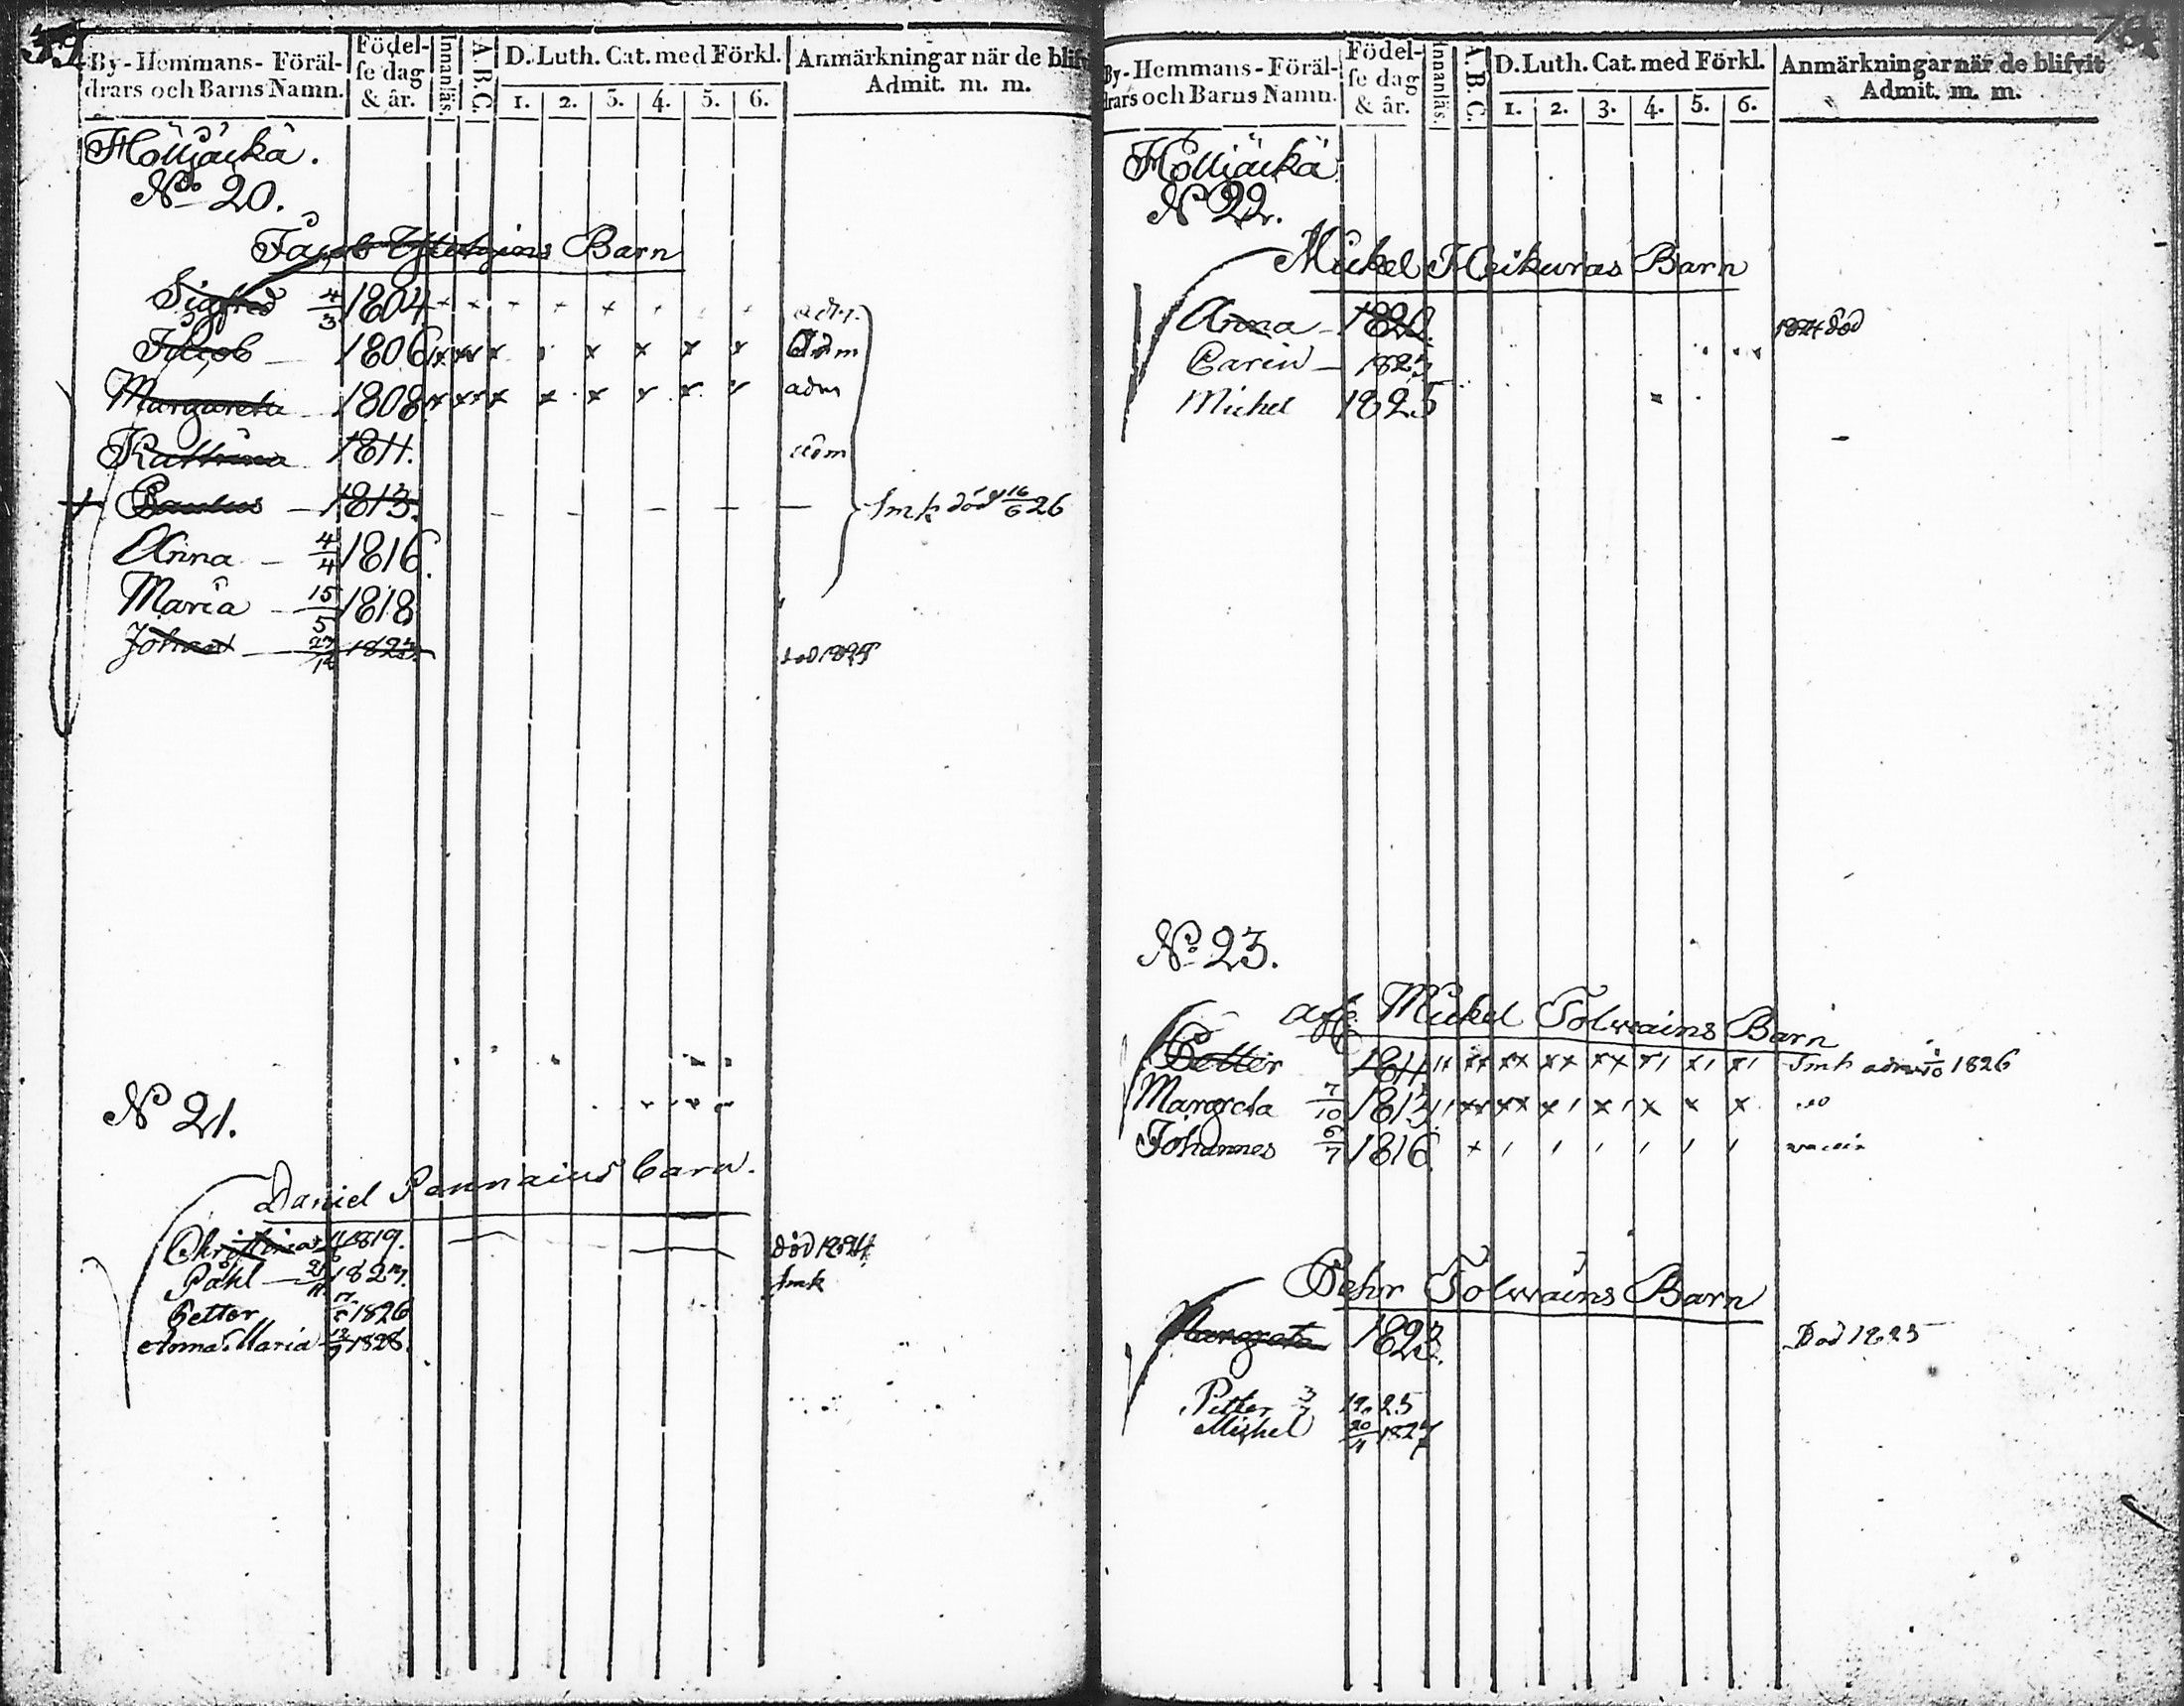 By-Hemmans-Föräl-
drars och Barns Namn.
Födel-
se dag
& år.
Innanläs.
A.B.C.
D. Luth. Cat. med Förkl.
1. 2. 3. 4. 5. 6.
Anmärkningar när de blifv
Admit. m. m.
No 20.
Barn
Sigfred 4/3 1804
Jacob 1806 x xx x x x x x Adm
Margareta 1808 x xx x x x x x x adm
Kathrina 1811. adm
Paulus 1813. död 16/6 26
Anna 4/4 1816.
Maria 15/5 1818
Johan 1823. död 1825
No 21.
Daniel barn.
Christina 1819. död 1824
Påhl 1823.
Petter 1826
Anna Maria 1828.
By-Hemmans-Föräl-
drars och Barns Namn.
Födel-
se dag
& år.
Innanläs.
A.B.C.
D. Luth. Cat. med Förkl.
1. 2. 3. 4. 5. 6.
Anmärkningar när de blifvit
Admit. m. m.
No 22.
Mickel Heikuras Barn
Anna 1820. 1824 död
Carin 1823
Michel 1825
No 23.
afl. Mickel Tolwains Barn
Petter 1811 1826
Margreta 7/10 1813
Johannes 6/7 1816.
Pehr Tolwains Barn
Margreta 1823. Död 1825
Petter 1825
Michel 20/4 1827